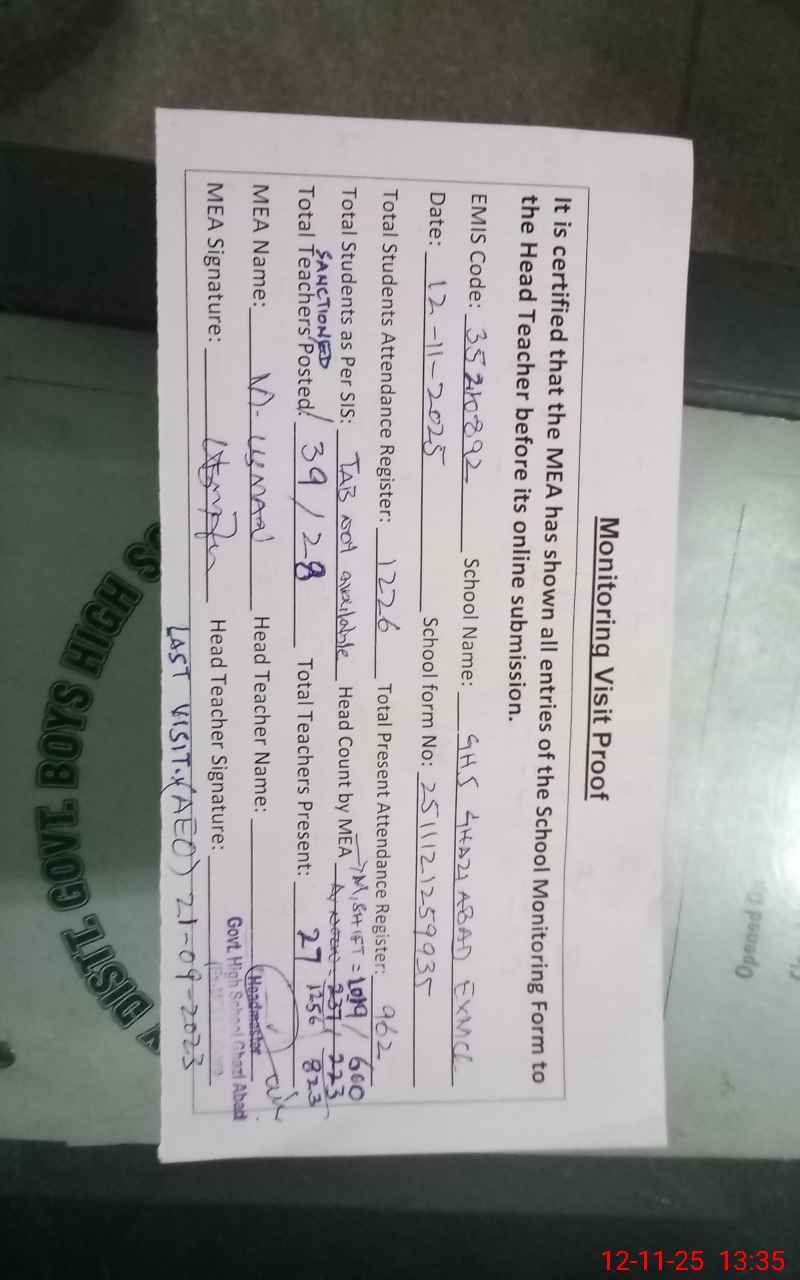 Monitoring Visit Proof
It is certified that the MEA has shown all entries of the School Monitoring Form to
the Head Teacher before its online submission.
EMIS Code: 35210892 School Name: GHS GHAZI ABAD EXMCL
Date: 12-11-2025 School form No: 2511121259935
Total Students Attendance Register: 1226 Total Present Attendance Register: 962
→ M, SHIFT = 1019 / 600
Total Students as Per SIS: TAB Not available Head Count by MEA 237 / 223
SANCTIONED 1256 823
Total Teachers Posted: 39 / 28 Total Teachers Present: 27
MEA Name: M- USMAN Head Teacher Name:
MEA Signature: Head Teacher Signature:
Headmaster
Govt. High School Ghazi Abad
LAST VISIT (AEO) 21-09-2023
DISTT. GOVT. BOYS HIGH
Opened
12-11-25 13:35